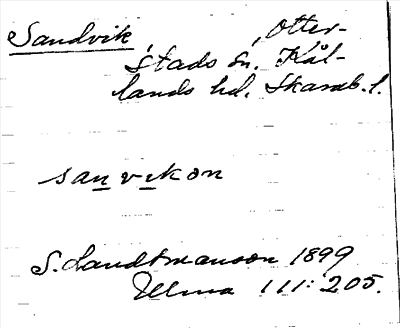 Sandvik, Otter-
stads sn. Kål-
lands hd. Skarab. l.
sanvikon
S. Landtmanson 1899
Ulma 111: 205.